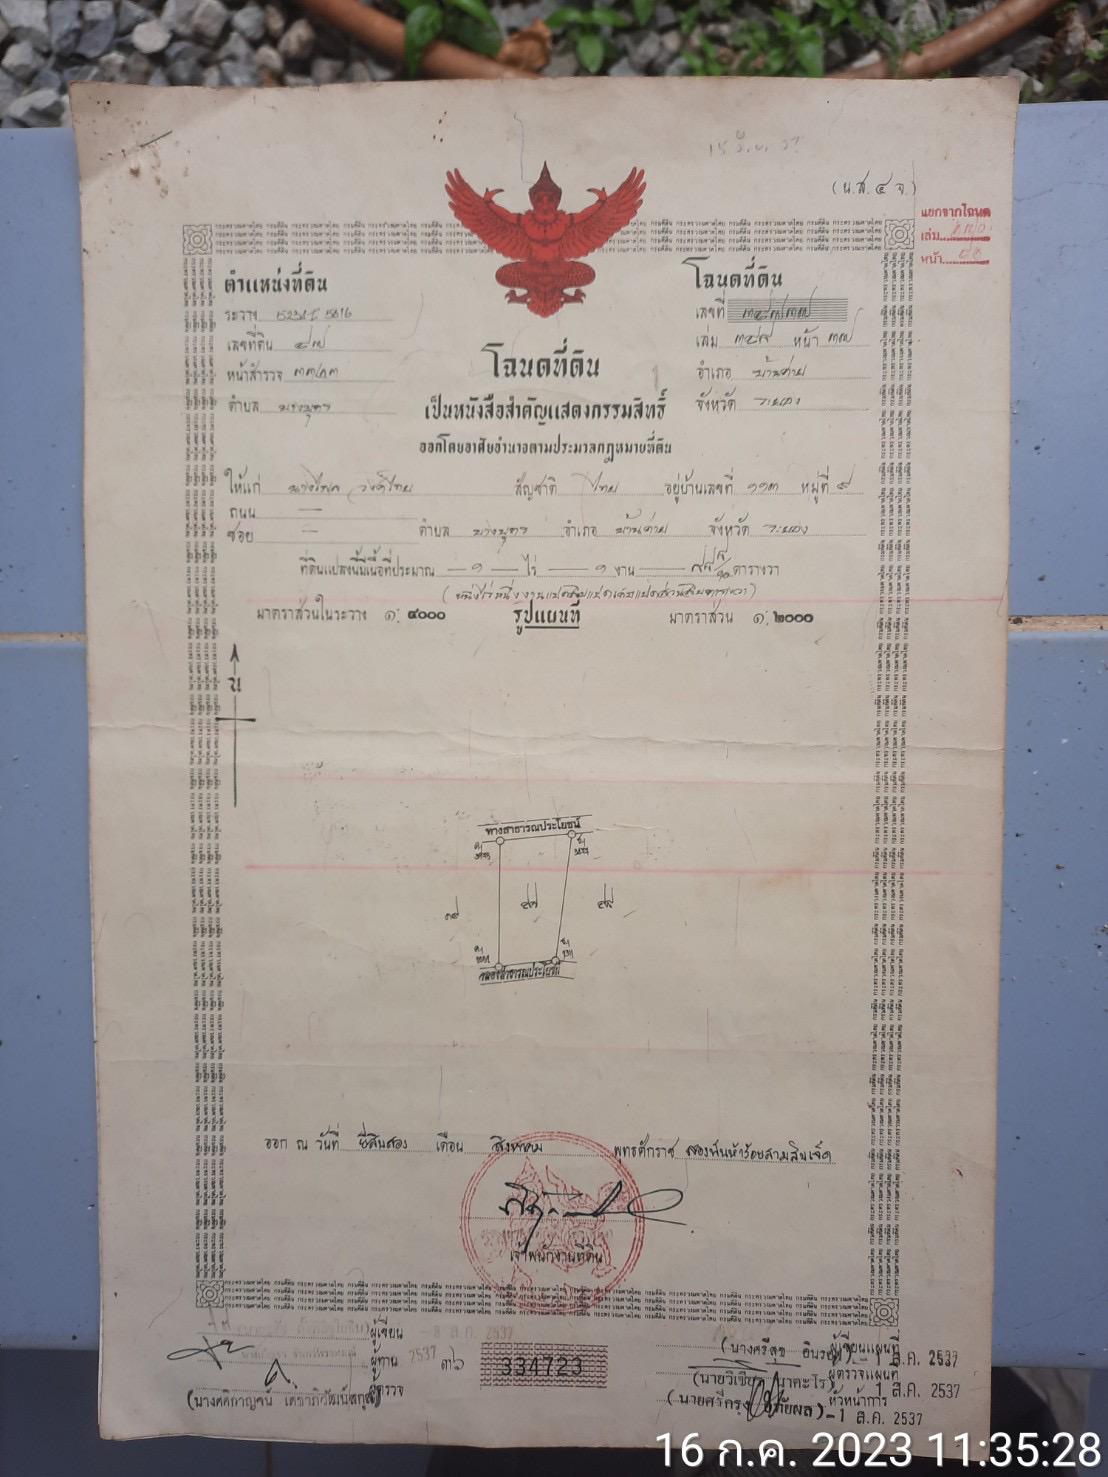 (น.ส. ๔ จ.)
แยกจากโฉนด
เล่ม
หน้า
ตำแหน่งที่ดิน
โฉนดที่ดิน
ระวาง 5234 I 5816
เลขที่
เลขที่ดิน ๔๗
เล่ม ๓๔๘ หน้า ๓๗
หน้าสำรวจ
โฉนดที่ดิน
อำเภอ บ้านค่าย
ตำบล บางบุตร
เป็นหนังสือสำคัญแสดงกรรมสิทธิ์
จังหวัด ระยอง
ออกโดยอาศัยอำนาจตามประมวลกฎหมายที่ดิน
ให้แก่ สัญชาติ ไทย อยู่บ้านเลขที่ ๑๑๓ หมู่ที่ ๙
ถนน —
ซอย — ตำบล บางบุตร อำเภอ บ้านค่าย จังหวัด ระยอง
ที่ดินแปลงนี้มีเนื้อที่ประมาณ — ๑ — ไร่ — ๑ งาน — ๘๘ ๘/๑๐ ตารางวา
(หนึ่งไร่หนึ่งงานแปดสิบแปดเศษแปดส่วนสิบตารางวา)
มาตราส่วนในระวาง ๑ : ๔๐๐๐ รูปแผนที่ มาตราส่วน ๑ : ๒๐๐๐
น
ทางสาธารณประโยชน์
๓๙ ๔๗ ๔๘
คลองสาธารณประโยชน์
ออก ณ วันที่ ยี่สิบสอง เดือน สิงหาคม พุทธศักราช สองพันห้าร้อยสามสิบเจ็ด
เจ้าพนักงานที่ดิน
ผู้เขียน
ผู้ทาน 2537
ผู้ตรวจ
(นางศศิกาญจน์ เดชาภิวัฒน์สกุล)
๓๖ 334723
(นางศรีสุข อินรอด) ผู้เขียนแผนที่ -1 ส.ค. 2537
(นายวิเชียร นาคะไร) ผู้ตรวจแผนที่ 1 ส.ค. 2537
(นายศรีกรุง อภัยผล) หัวหน้าการ -1 ส.ค. 2537
16 ก.ค. 2023 11:35:28